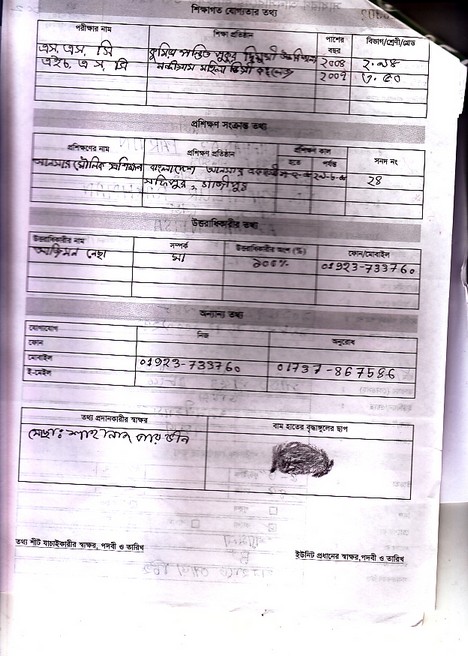 শিক্ষাগত যোগ্যতার তথ্য
পরীক্ষার নাম শিক্ষা প্রতিষ্ঠান পাশের বছর বিভাগ/শ্রেণী/গ্রেড
এস, এস, সি ২০০৪ ২.৯৪
এইচ, এ স, সি মহিলা ডিগ্রী কলেজ ২০০৭ ৩.৫০
প্রশিক্ষণ সংক্রান্ত তথ্য
প্রশিক্ষণের নাম প্রশিক্ষণ প্রতিষ্ঠান প্রশিক্ষণ কাল সনদ নং
হতে পর্যন্ত
আনসার মৌলিক প্রশিক্ষণ বাংলাদেশ আনসার একাডেমী
সফিপুর, গাজীপুর ২৪
উত্তরাধিকারীর তথ্য
উত্তরাধিকারীর নাম সম্পর্ক উত্তরাধিকারীর অংশ (%) ফোন/মোবাইল
নেছা মা ১০০% 01923-733760
অন্যান্য তথ্য
যোগাযোগ নিজ অনুরোধ
ফোন
মোবাইল 01923-733760 01737-867586
ই-মেইল
তথ্য প্রদানকারীর স্বাক্ষর বাম হাতের বৃদ্ধাঙ্গুলের ছাপ
মোছাঃ
তথ্য শীট যাচাইকারীর স্বাক্ষর, পদবী ও তারিখ
ইউনিট প্রধানের স্বাক্ষর,পদবী ও তারিখ